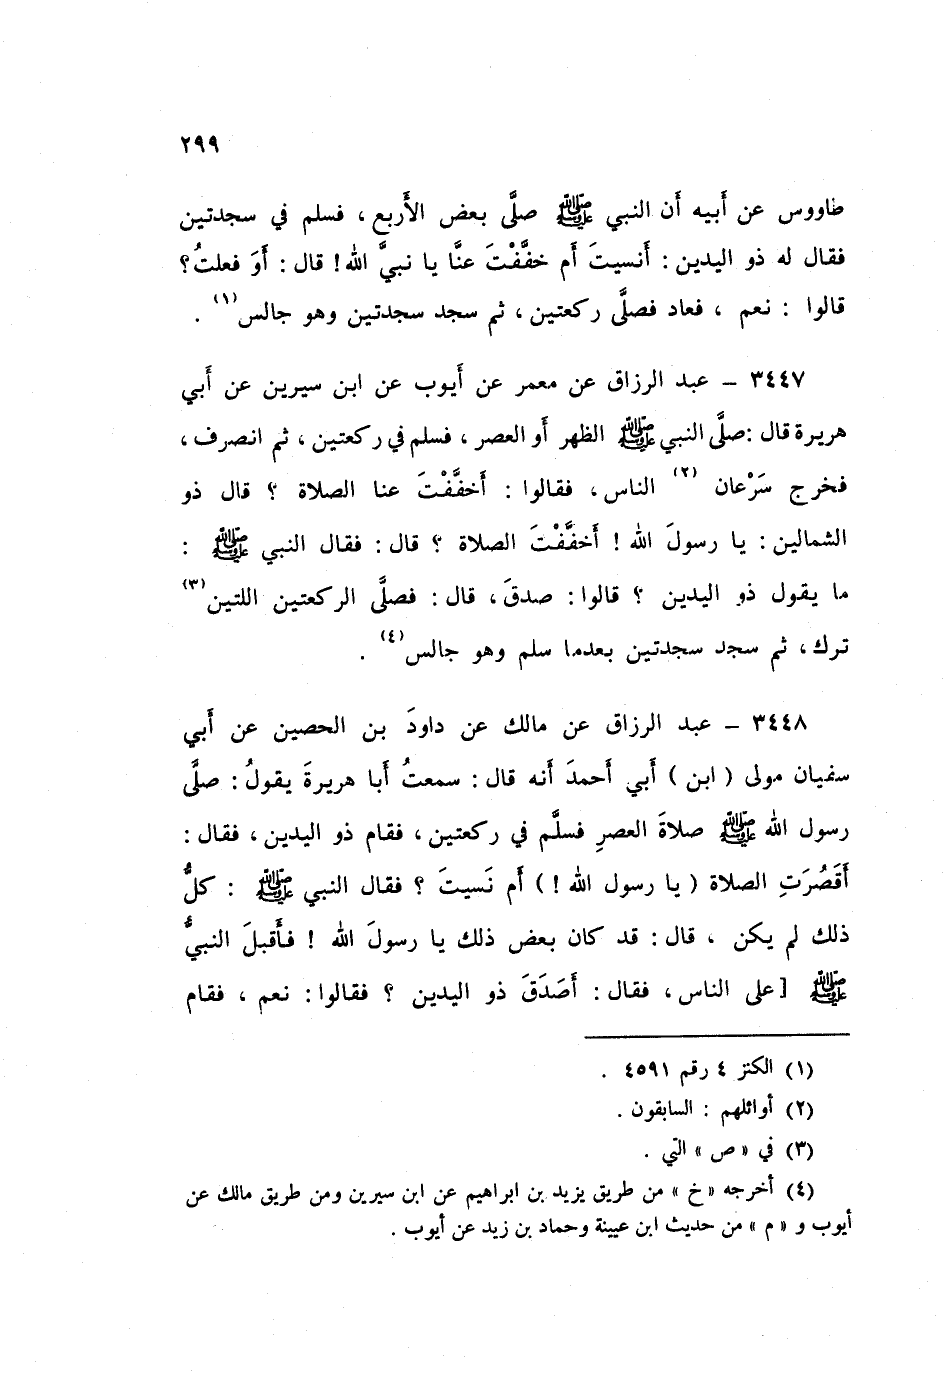 ٢٩٩
طاووس عن أَبيه أَن النبي ﷺ صلَّى بعض الأَربع ، فسلم في سجدتين
فقال له ذو اليدين : أَنسيتَ أَم خفَّفْتَ عنَّا يا نبيَّ الله! قال : أَوَ فعلتُ؟
قالوا : نعم ، فعاد فصلَّى ركعتين ، ثم سجد سجدتين وهو جالس(١) .
٣٤٤٧ – عبد الرزاق عن معمر عن أَيوب عن ابن سيرين عن أَبي
هريرة قال :صلَّى النبي ﷺ الظهر أَو العصر ، فسلم في ركعتين ، ثم انصرف ،
فخرج سَرْعان (٢) الناس ، فقالوا : أَخفَّفْتَ عنا الصلاة ؟ قال ذو
الشمالين : يا رسولَ الله ! أَخفَّفْتَ الصلاة ؟ قال : فقال النبي ﷺ :
ما يقول ذو اليدين ؟ قالوا : صدقَ ، قال : فصلَّى الركعتين اللتين(٣)
ترك ، ثم سجد سجدتين بعدما سلم وهو جالس(٤) .
٣٤٤٨ – عبد الرزاق عن مالك عن داودَ بن الحصين عن أَبي
سفيان مولى ( ابن ) أَبي أَحمدَ أَنه قال : سمعتُ أَبا هريرةَ يقولُ : صلَّى
رسول الله ﷺ صلاةَ العصرِ فسلَّم في ركعتين ، فقام ذو اليدين ، فقال :
أَقَصُرَتِ الصلاة ( يا رسول الله ! ) أَم نَسيتَ ؟ فقال النبي ﷺ : كلُّ
ذلك لم يكن ، قال : قد كان بعض ذلك يا رسولَ الله ! فأَقبلَ النبيُّ
ﷺ [على الناس ، فقال : أَصَدَقَ ذو اليدين ؟ فقالوا : نعم ، فقام
(١) الكنز ٤ رقم ٤٥٩١ .
(٢) أوائلهم : السابقون .
(٣) في « ص » التي .
(٤) أخرجه « خ » من طريق يزيد بن ابراهيم عن ابن سيرين ومن طريق مالك عن
أيوب و « م » من حديث ابن عيينة وحماد بن زيد عن أيوب .